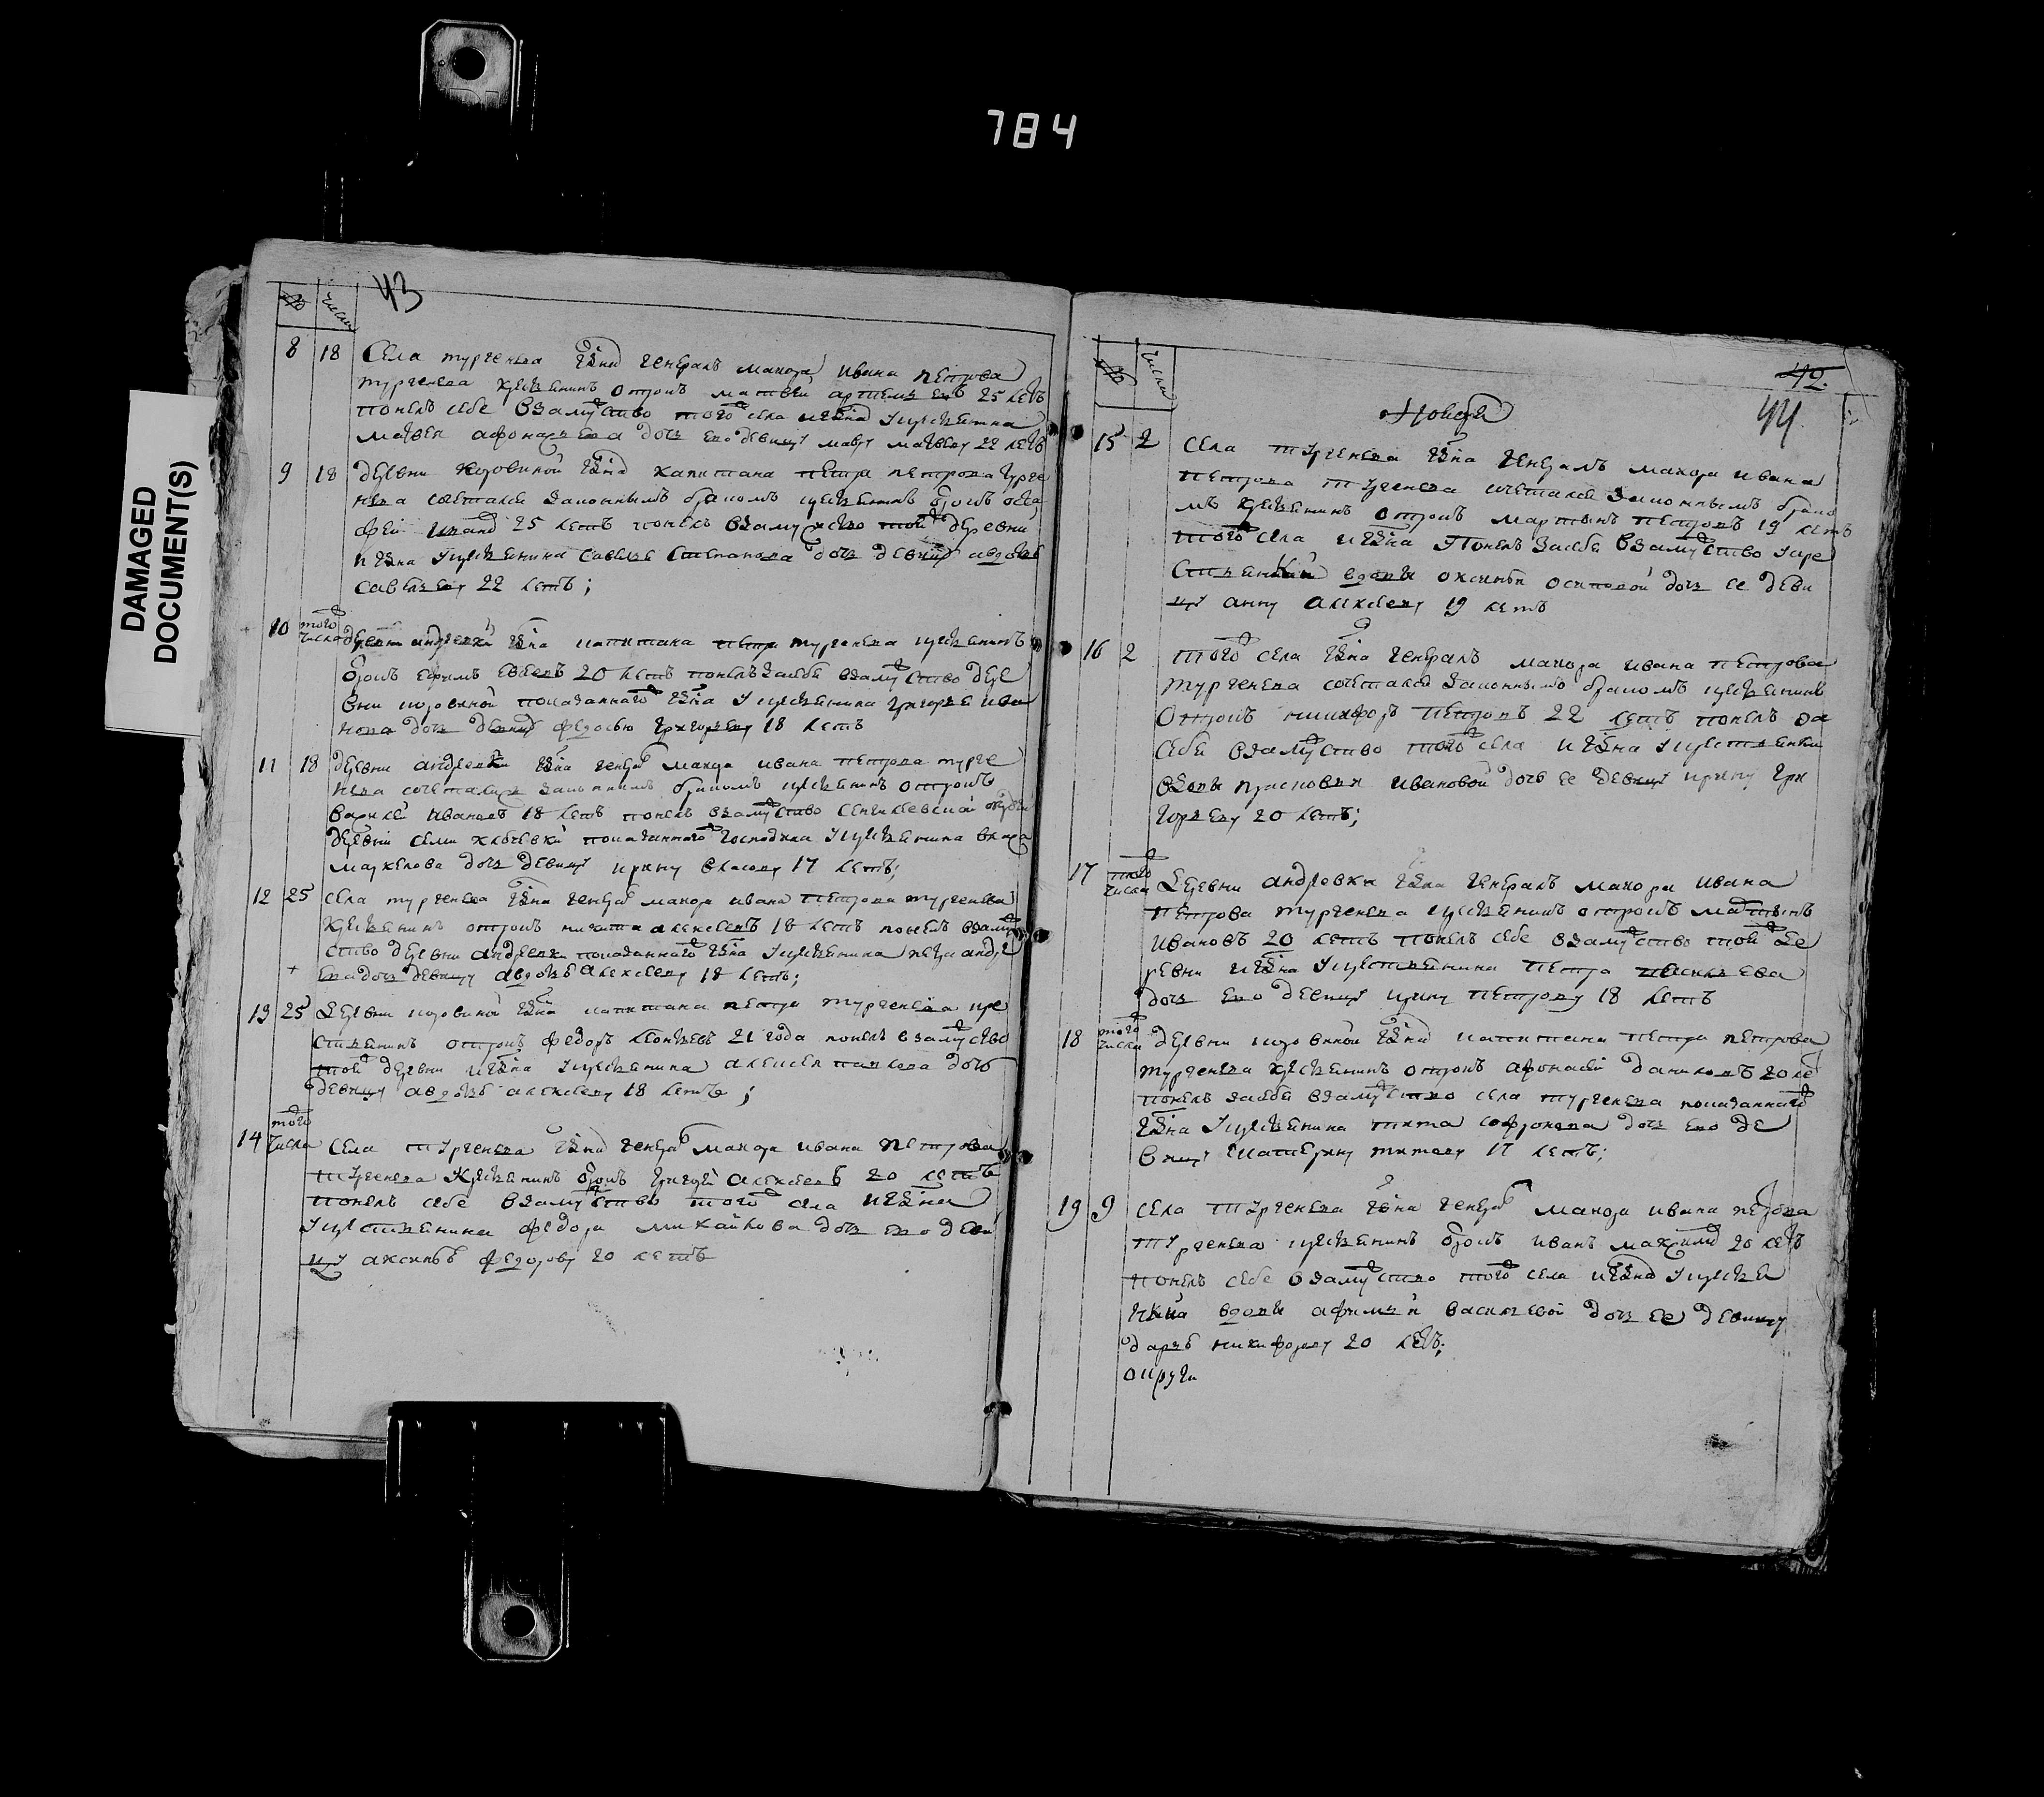 784
DAMAGED
DOCUMENT(S)
43
№ числа
8 18 Села тургенева гдна генералъ маиора ивана петрова
тургенева крстьянинъ отрокъ матвей артемьевъ 25 летъ
понелъ себе взамуство того села и гдна укрстьянина
матвея афонасьева дочь ево девицу мавру матвееву 22 летъ
9 18 деревни коровиной гдна капитана петра петрова турге
нева сочетался законнымъ бракомъ крстьянинъ отрокъ
25 летъ понелъ взамужство той деревни
и гдна укрстьянина савелья степанова дочь девицу авдотью
савельеву 22 летъ;
10 того числа деревни андревки гдна капитана петра тургенева крстьянинъ
отрокъ ефимъ 20 летъ понелъ засебе взамуство дере
вни коровиной показанного гдна укрстьянина григорья ива
нова дочь девицу федосью григорьеву 18 летъ
11 18 деревни андревки гдна генералъ маиора ивана петрова турге
нева сочетался законнымъ бракомъ крстьянинъ отрокъ
ивановъ 18 летъ понелъ взамуство сенгилевской округи
деревни показанного господина укрстьянина власа
маркелова дочь девицу ирину власову 17 летъ;
12 25 села тургенева гдна генералъ маиора ивана петрова тургенева
крстьянинъ отрокъ никита алексеевъ 18 летъ понелъ взаму
ство деревни андревки показанного гдна укрстьянина
дочь девицу авдотью алексееву 18 летъ;
13 25 Деревни коровиной гдна капитана петра тургенева кре
стьянинъ отрокъ федоръ леонтьевъ 21 года понелъ взамуство
той деревни и гдна укрстьянина алексея павлова дочь
девицу авдотью алексееву 18 летъ;
14 того числа села тургенева гдна генералъ маиора ивана петрова
тургенева крстьянинъ отрокъ григорей алексеевъ 20 летъ
понелъ себе взамуство того села и гдна
укрстьянина федора михайлова дочь ево деви
цу аксинью федорову 20 летъ
42.
44
№ числа
Ноября
15 2 села тургенева гдна генералъ маиора ивана
петрова тургенева сочетался законнымъ брако
мъ крстьянинъ отрокъ мартынъ петровъ 19 летъ
того села и гдна понелъ засебе взамуство укре
стьянской вдовы оксиньи осиповой дочь ее деви
цу анну алексееву 19 летъ
16 2 того села гдна генералъ маиора ивана петрова
тургенева сочетался законнымъ бракомъ крстьянинъ
отрокъ никифоръ петровъ 22 летъ понелъ за
себе взамуство того села и гдна укрстьянки
вдовы прасковьи ивановой дочь ее девицу ирину гри
горьеву 20 летъ;
17 того числа Деревни андревки гдна генералъ маиора ивана
петрова тургенева крстьянинъ отрокъ мартынъ
ивановъ 20 летъ понелъ себе взамуство той де
ревни и гдна укрстьянина петра васильева
дочь ево девицу ирину петрову 18 летъ
18 того числа деревни коровиной гдна капитана петра петрова
тургенева крстьянинъ отрокъ афонасей даниловъ 20 ле
понелъ засебе взамуство села тургенева показанного
гдна укрстьянина тита софронова дочь ево де
вицу катерину титову 17 летъ;
19 9 села тургенева гдна генералъ маиора ивана петрова
тургенева крстьянинъ отрокъ иванъ максимовъ 20 летъ
понелъ себе взамуство того села и гдна укрстья
нки вдовы афимьи васильевой дочь ее девицу
дарью никифорову 20 летъ;
округи